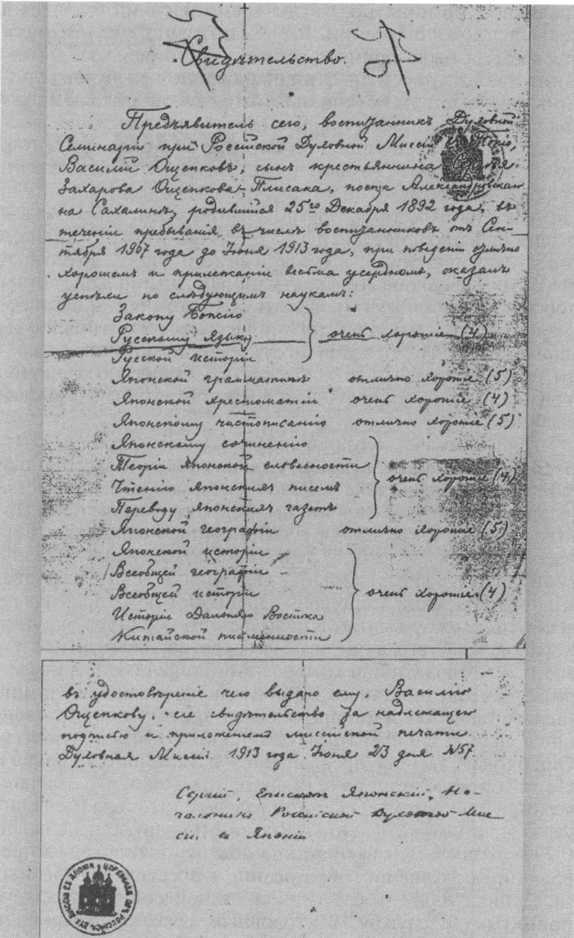 Свидѣтельство.
Предъявитель сего, воспитанникъ Духовной
Семинаріи при Россійской Духовной Миссіи
Василій Ощепковъ, сынъ крестьянина
Захарова Ощепкова-Плисака, поста Александровскаго
на Сахалинѣ, родившійся 25го Декабря 1892 года, въ
теченіи пребыванія въ числѣ воспитанниковъ отъ Сен-
тября 1907 года до Іюня 1913 года, при поведеніи отлично
хорошемъ и прилежаніи весьма усердномъ, оказалъ
успѣхи по слѣдующимъ наукамъ:
Закону Божію
Русскому языку очень хорошіе (4)
Русской исторіи
Японской грамматикѣ отлично хорошіе (5)
Японской хрестоматіи очень хорошіе (4)
Японскому чистописанію отлично хорошіе (5)
Японскому сочиненію
Теоріи Японской словесности
Чтенію Японскихъ писемъ очень хорошіе (4)
Переводу Японскихъ газетъ
Японской географіи отлично хорошіе (5)
Японской исторіи
Всеобщей географіи
Всеобщей исторіи очень хорошіе (4)
Исторіи Дальняго Востока
Китайской письменности
въ удостовѣреніе чего выдано ему, Василію
Ощепкову, сіе свидѣтельство за надлежащею
подписью и приложеніемъ миссійской печати.
Духовная Миссія. 1913 года Іюня 23 дня №57.
Сергій, Епископъ Японскій, На-
чальникъ Россійской Духовной Мис-
сіи въ Японіи